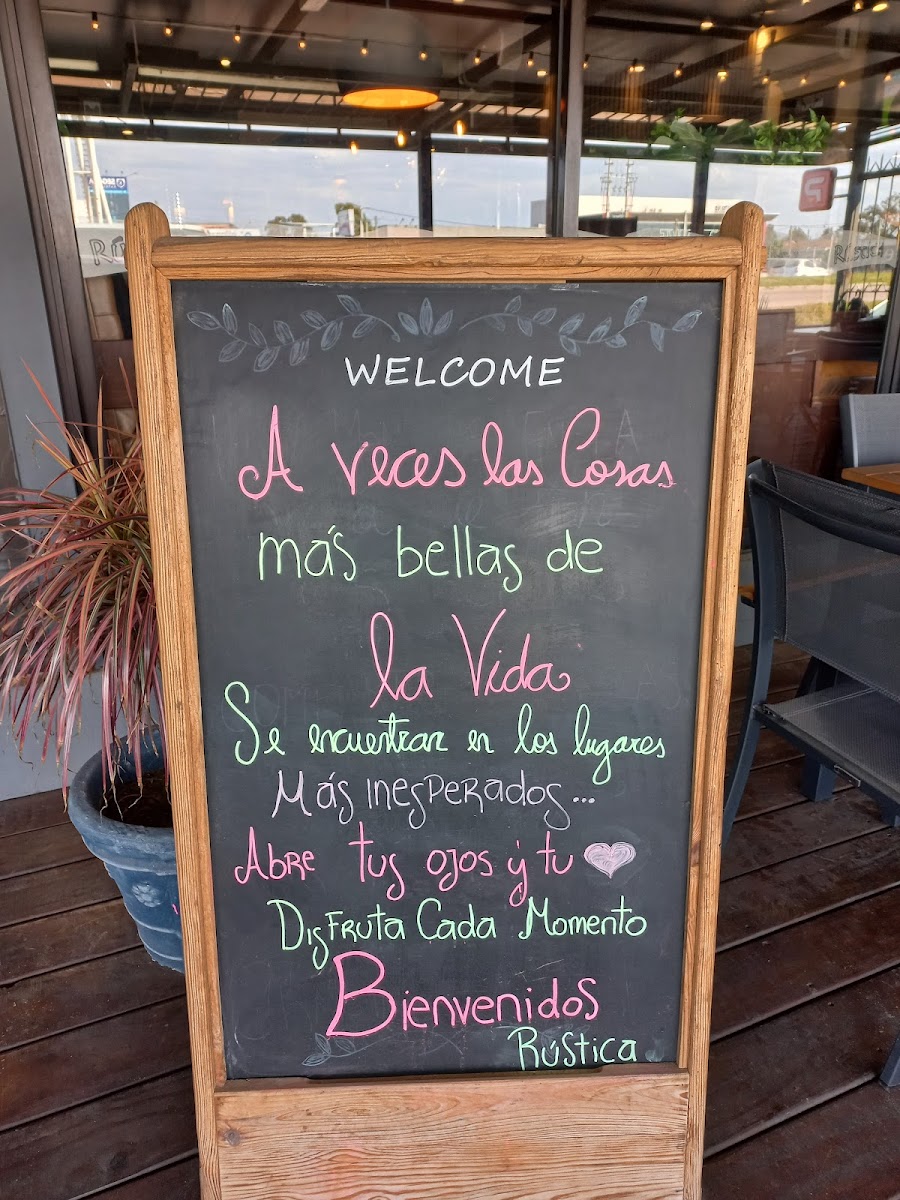 WELCOME
A veces las Cosas
más bellas de
la Vida
Se encuentran en los lugares
Más inesperados...
Abre tus ojos y tu
Disfruta Cada Momento
Bienvenidos
Rústica